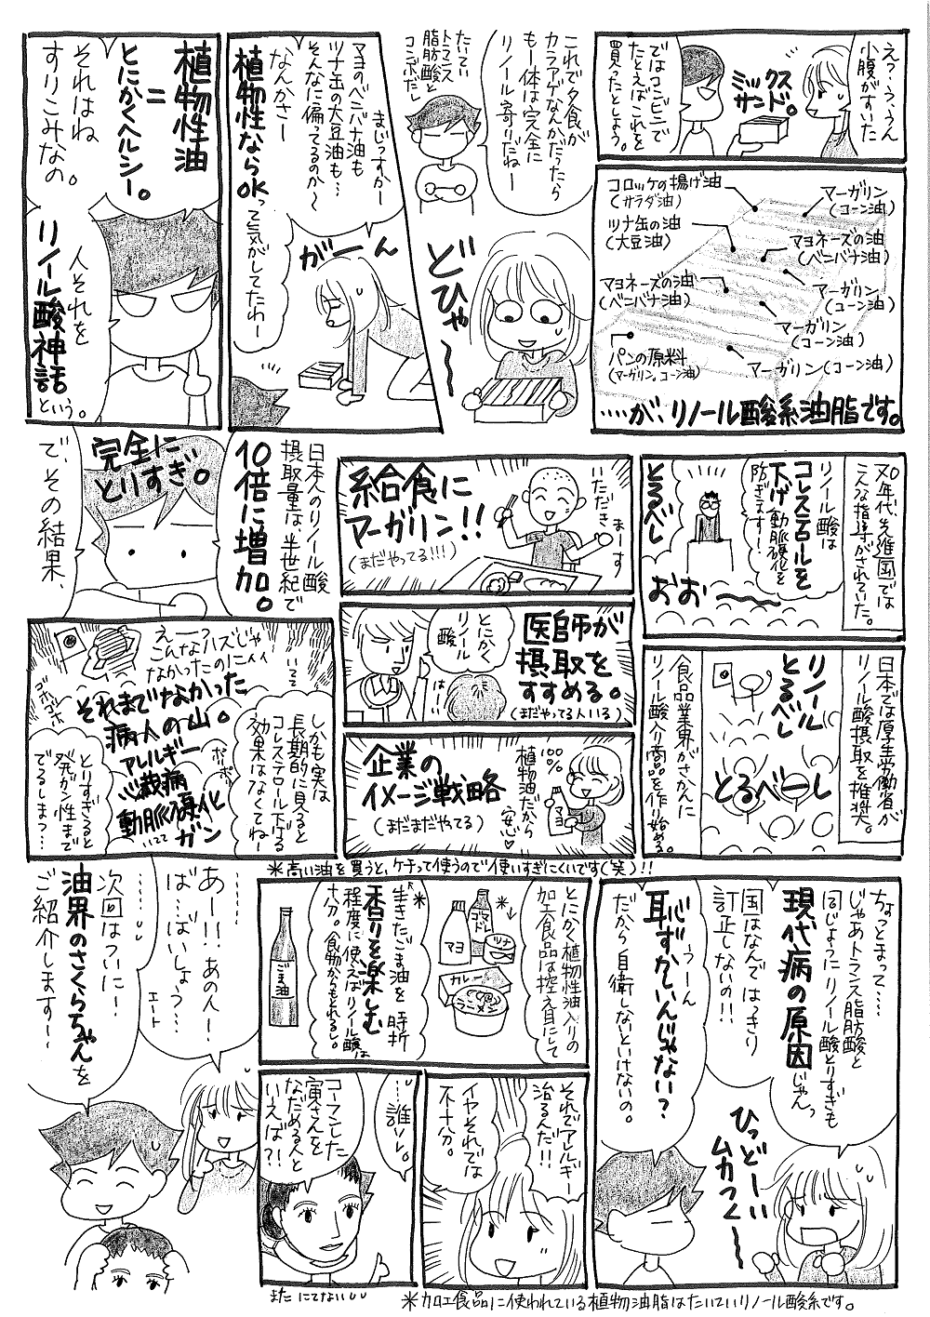 えっ…う、うん
小腹がすいた
クスッ
ミックス
サンド。
ではコンビニで
たとえばこれを
買ったとしよう。
コロッケの揚げ油
(サラダ油)
マーガリン
(コーン油)
ツナ缶の油
(大豆油)
マヨネーズの油
(ベニバナ油)
マヨネーズの油
(ベニバナ油)
マーガリン
(コーン油)
マーガリン
(コーン油)
パンの原料
(マーガリン。コーン油)
マーガリン(コーン油)
……が、リノール酸系油脂です。
これで夕食が
カラアゲなんかだったら
もー体は完全に
リノール寄りだねー
たいてい
トランス
脂肪酸と
コンボだし
どひゃ〜
まじっすかー
マヨのベニバナ油も
ツナ缶の大豆油も…
そんなに偏ってるのか〜
なんかさー
植物性なら
OKって気がしてたわー
がーん
植物性油
=
とにかくヘルシー。
それはね
すりこみなの。
人それを
リノール酸神話
という。
70年代、先進国では
こんな指導がされていた。
リノール酸は
コレステロールを
下げ動脈硬化を
防ぎます!
とるべし
おお〜
日本では厚生労働省が
リノール酸摂取を推奨。
リノール
とるべし
とるべーし
食品業界がさかんに
リノール酸入り商品を作り始める。
給食に
マーガリン!!
(まだやってる!!!)
いただきまーす
医師が
摂取を
すすめる。
(まだやってる人いる)
とにかく
リノール
酸
はい
企業の
イメージ戦略
(まだまだやってる)
100%
植物油だから
安心♥
マヨ
日本人のリノール酸
摂取量は、半世紀で
10倍に増加。
完全に
とりすぎ。
で、その結果、
えーっ?
こんなハズじゃ
なかったのにィィ
いてて
ゴホゴホ
それまでなかった
病人の山。
アレルギー
心臓病
動脈硬化
ガン
ボリボリ
しかも実は
長期的に見ると
コレステロール下げる
効果はなくてねー
とりすぎると
発ガン性まで
でるしまつ…
*高い油を買うと、ケチって使うので使いすぎにくいです(笑)!!
ちょっとまって…
じゃあトランス脂肪酸と
同じようにリノール酸とりすぎも
現代病の原因じゃんっ
国はなんではっきり
訂正しないの!!
うーん
恥ずかしいんじゃない?
だから自衛しないといけないの。
ひっどーいい
ムカつく〜
とにかく植物性油入りの
加工食品は控え目にして
*
マヨ
ゴマドレ
ツナ
カレー
ラーメン
*
生きたごま油を時折
香りを楽しむ
程度に使えばリノール酸は
十分。食物からもとれるし。
ごま油
それでアレルギー
治るんだ!!
イヤそれでは
不十分。
……誰ソレ。
コーフンした
寅さんを
なだめる人と
いえば?!
また にてないし
あー!!あの人ー
ば…ばいしょう?…
エート
……
次回はついにー
油界のさくらちゃんを
ご紹介します〜
*加工食品に使われている植物油脂はたいていリノール酸系です。